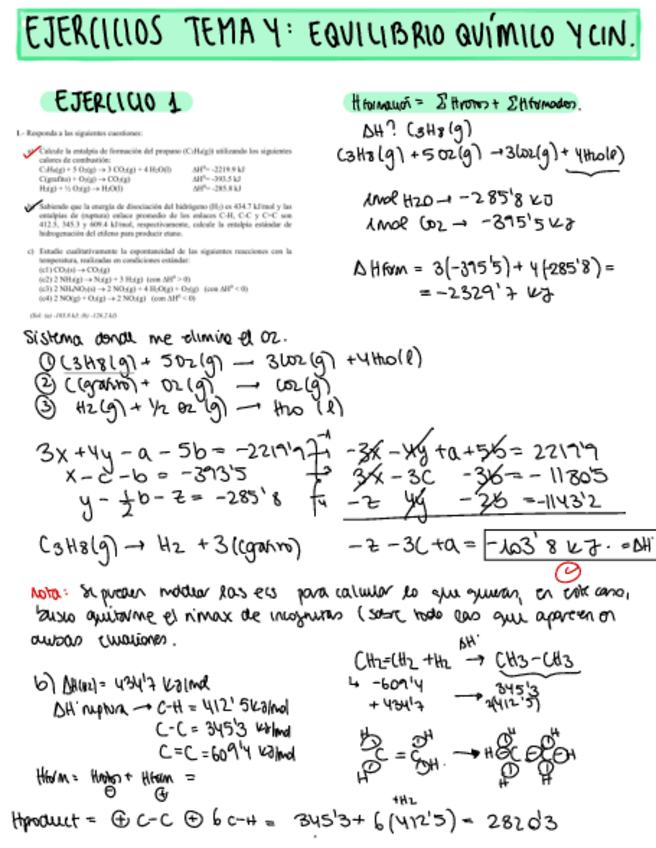 EJERCICIOS TEMA 4: EQUILIBRIO QUÍMICO Y CIN.
EJERCICIO 1
1.- Responda a las siguientes cuestiones:
a) Calcule la entalpía de formación del propano (C3H8(g)) utilizando los siguientes
calores de combustión:
C3H8(g) + 5 O2(g) → 3 CO2(g) + 4 H2O(l) ΔH°= -2219.9 kJ
C(grafito) + O2(g) → CO2(g) ΔH°= -393.5 kJ
H2(g) + ½ O2(g) → H2O(l) ΔH°= -285.8 kJ
b) Sabiendo que la energía de disociación del hidrógeno (H2) es 434.7 kJ/mol y las
entalpías de (ruptura) enlace promedio de los enlaces C-H, C-C y C=C son
412.5, 345.3 y 609.4 kJ/mol, respectivamente, calcule la entalpía estándar de
hidrogenación del etileno para producir etano.
c) Estudie cualitativamente la espontaneidad de las siguientes reacciones con la
temperatura, realizadas en condiciones estándar:
(c1) CO2(s) → CO2(g)
(c2) 2 NH3(g) → N2(g) + 3 H2(g) (con ΔH° > 0)
(c3) 2 NH4NO3(s) → 2 N2(g) + 4 H2O(g) + O2(g) (con ΔH° < 0)
(c4) 2 NO(g) + O2(g) → 2 NO2(g) (con ΔH° < 0)
(Sol: (a) -103.8 kJ; (b) -126.2 kJ)
Hformación = ΣHrotos + ΣHformados.
ΔH? C3H8(g)
C3H8(g) + 5O2(g) → 3CO2(g) + 4H2O(l)
1mol H2O → -285'8 kJ
1mol CO2 → -395'5 kJ
ΔHform = 3(-395'5) + 4(-285'8) =
= -2329'7 kJ
Sistema donde me elimine el O2.
① C3H8(g) + 5O2(g) → 3CO2(g) + 4H2O(l)
② C(grafito) + O2(g) → CO2(g)
③ H2(g) + 1/2 O2(g) → H2O (l)
3x + 4y - a - 5b = -2219'9 -1
x - c - b = -393'5 3
y - 1/2 b - z = -285'8 4
-3x - 4y + a + 5b = 2219'9
3x - 3c - 3b = -1180'5
-z 4y - 2b = -1143'2
C3H8(g) → H2 + 3C(grafito)
-z - 3c + a = -103'8 kJ. = ΔH°
nota: Se pueden moldear las ecs para calcular lo que quieran, en este caso,
busco quitarme el nºmax de incognitas (sobre todo las que aparecen en
ambas ecuaciones.
b) ΔH(H2) = 434'7 kJ/mol
ΔH° ruptura → C-H = 412'5 kJ/mol
C-C = 345'3 kJ/mol
C=C = 609'4 kJ/mol
Hform = Hrotos + Hform =
⊖ ⊕
ΔH°
CH2=CH2 + H2 → CH3-CH3
↳ -609'4 → 345'3
+434'7 2(412'5)
H H
C = C → H C C H
H H
+H2
Hproduct = ⊕ C-C ⊕ 6 C-H = 345'3 + 6(412'5) = 2820'3